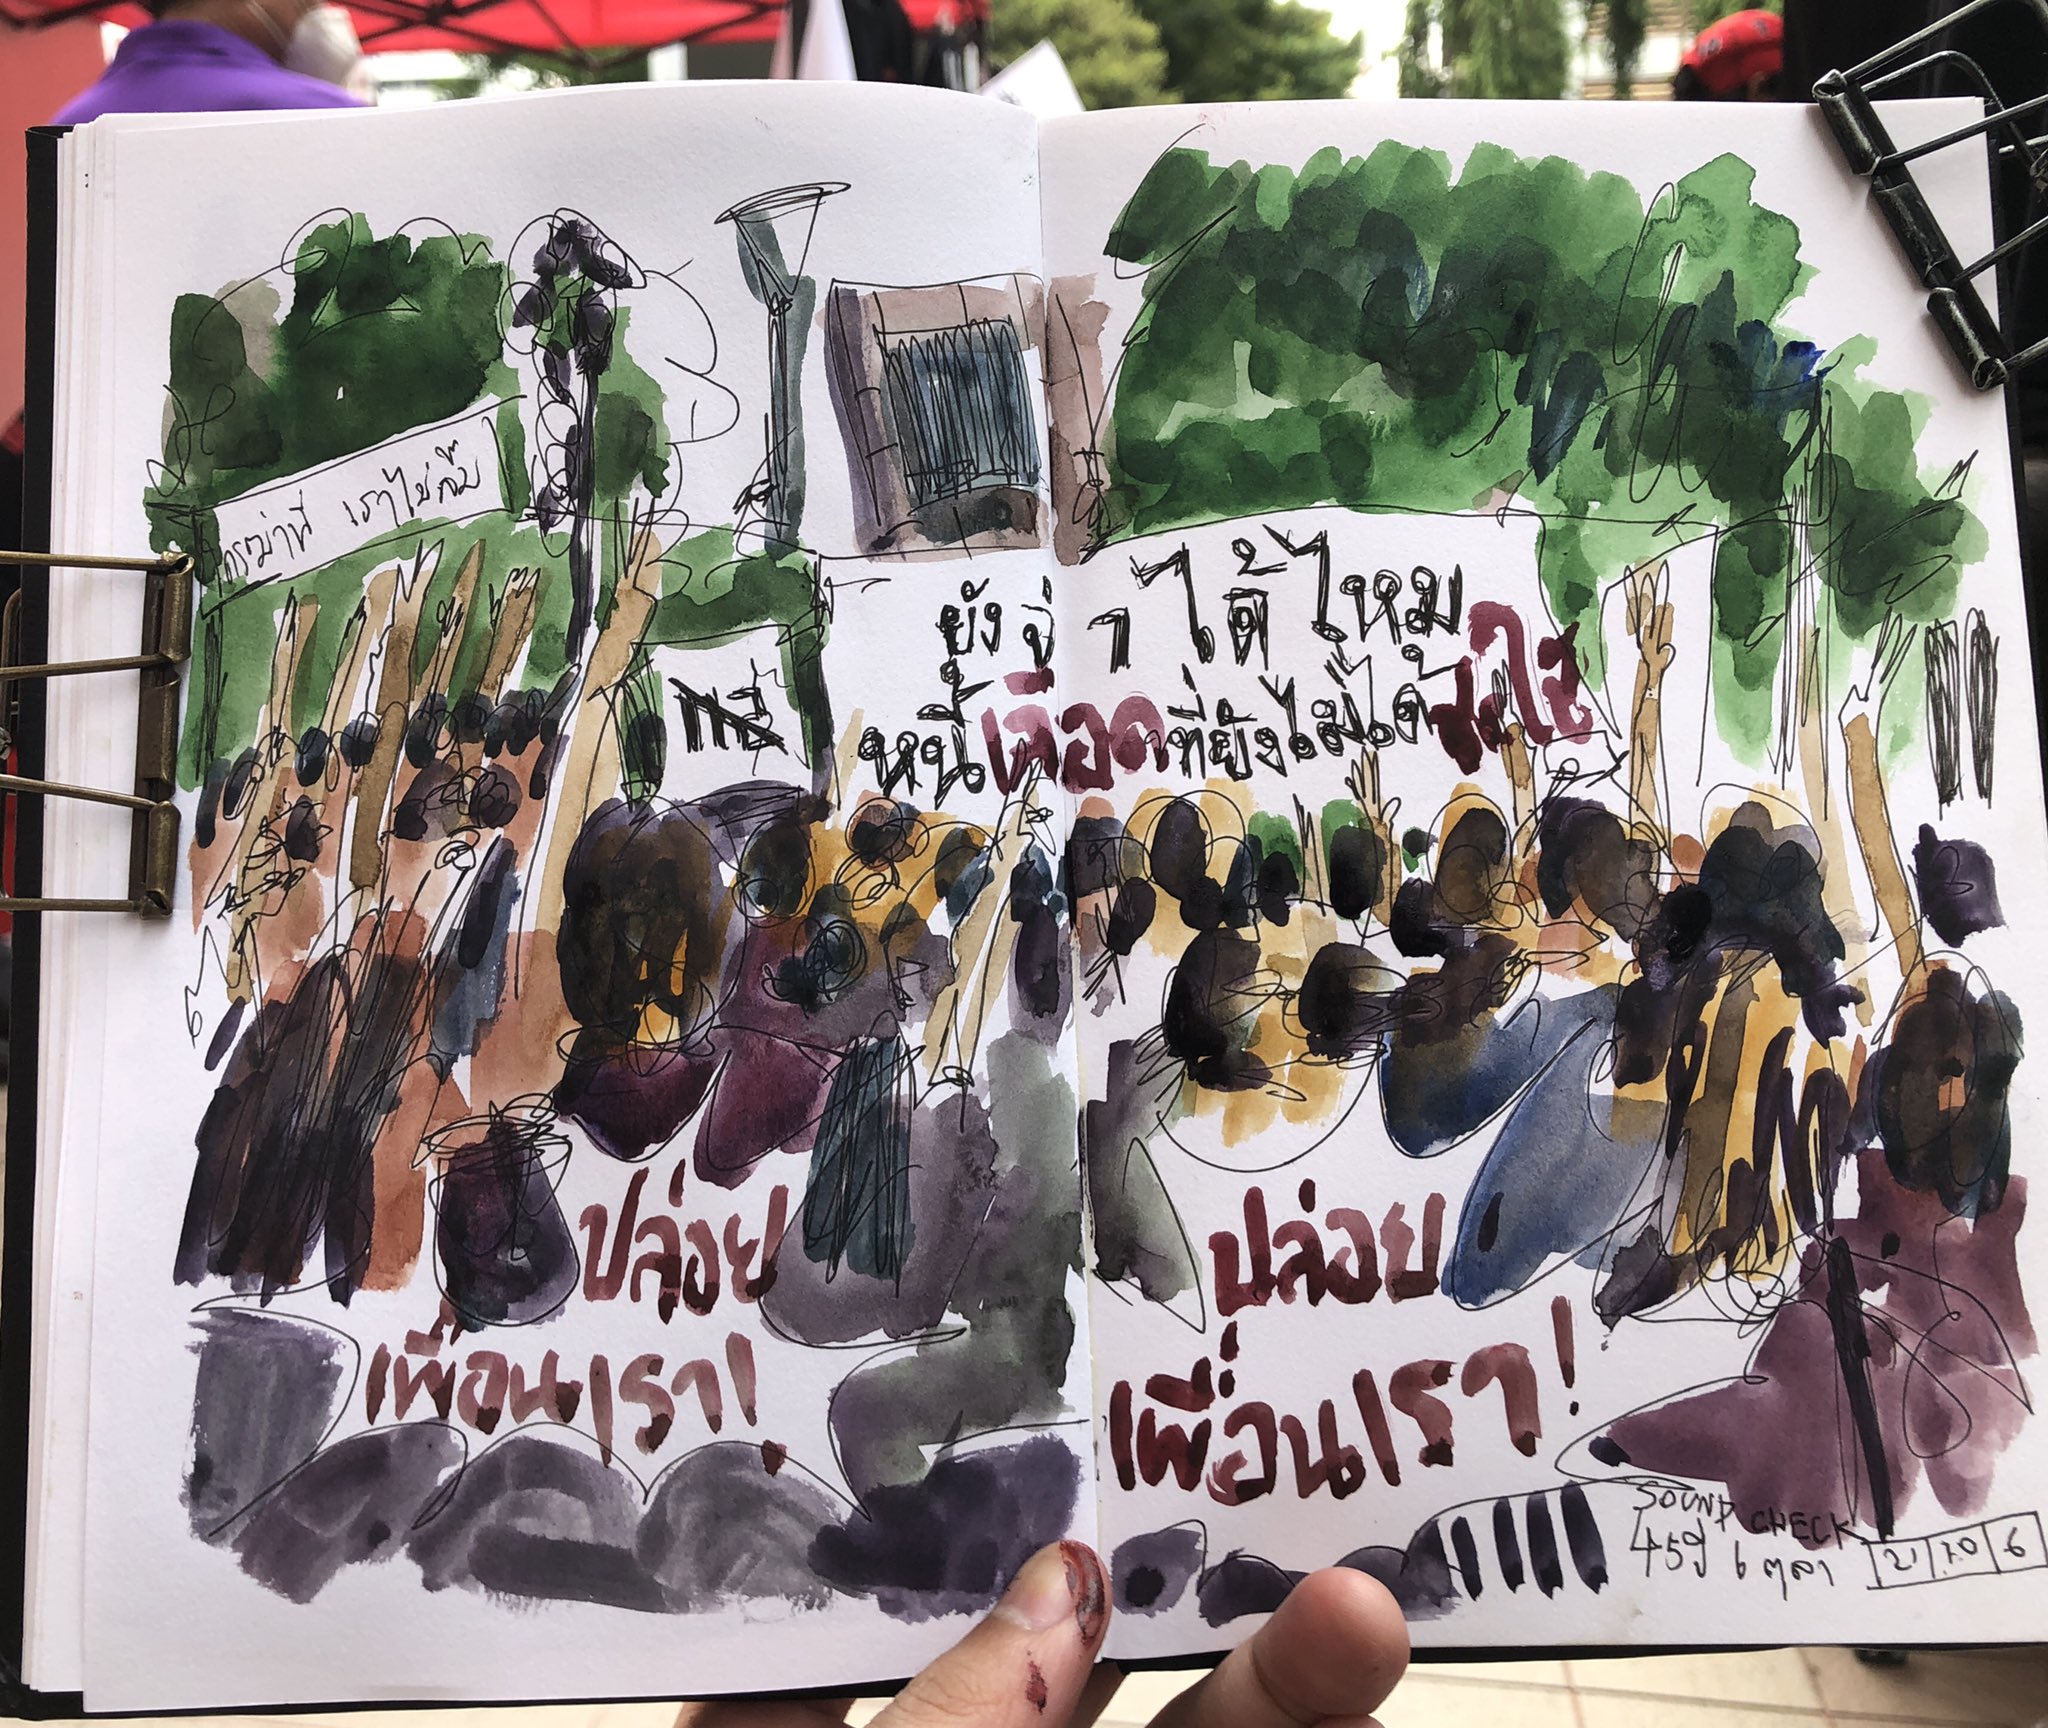 การฆ่าที่ เราไม่ลืม
ยังจำได้ไหม
หนี้เลือดที่ยังไม่ได้
ปล่อย
เพื่อนเรา!
ปล่อย
เพื่อนเรา!
SOUND CHECK
45ปี 6 ตุลา
21 10 6